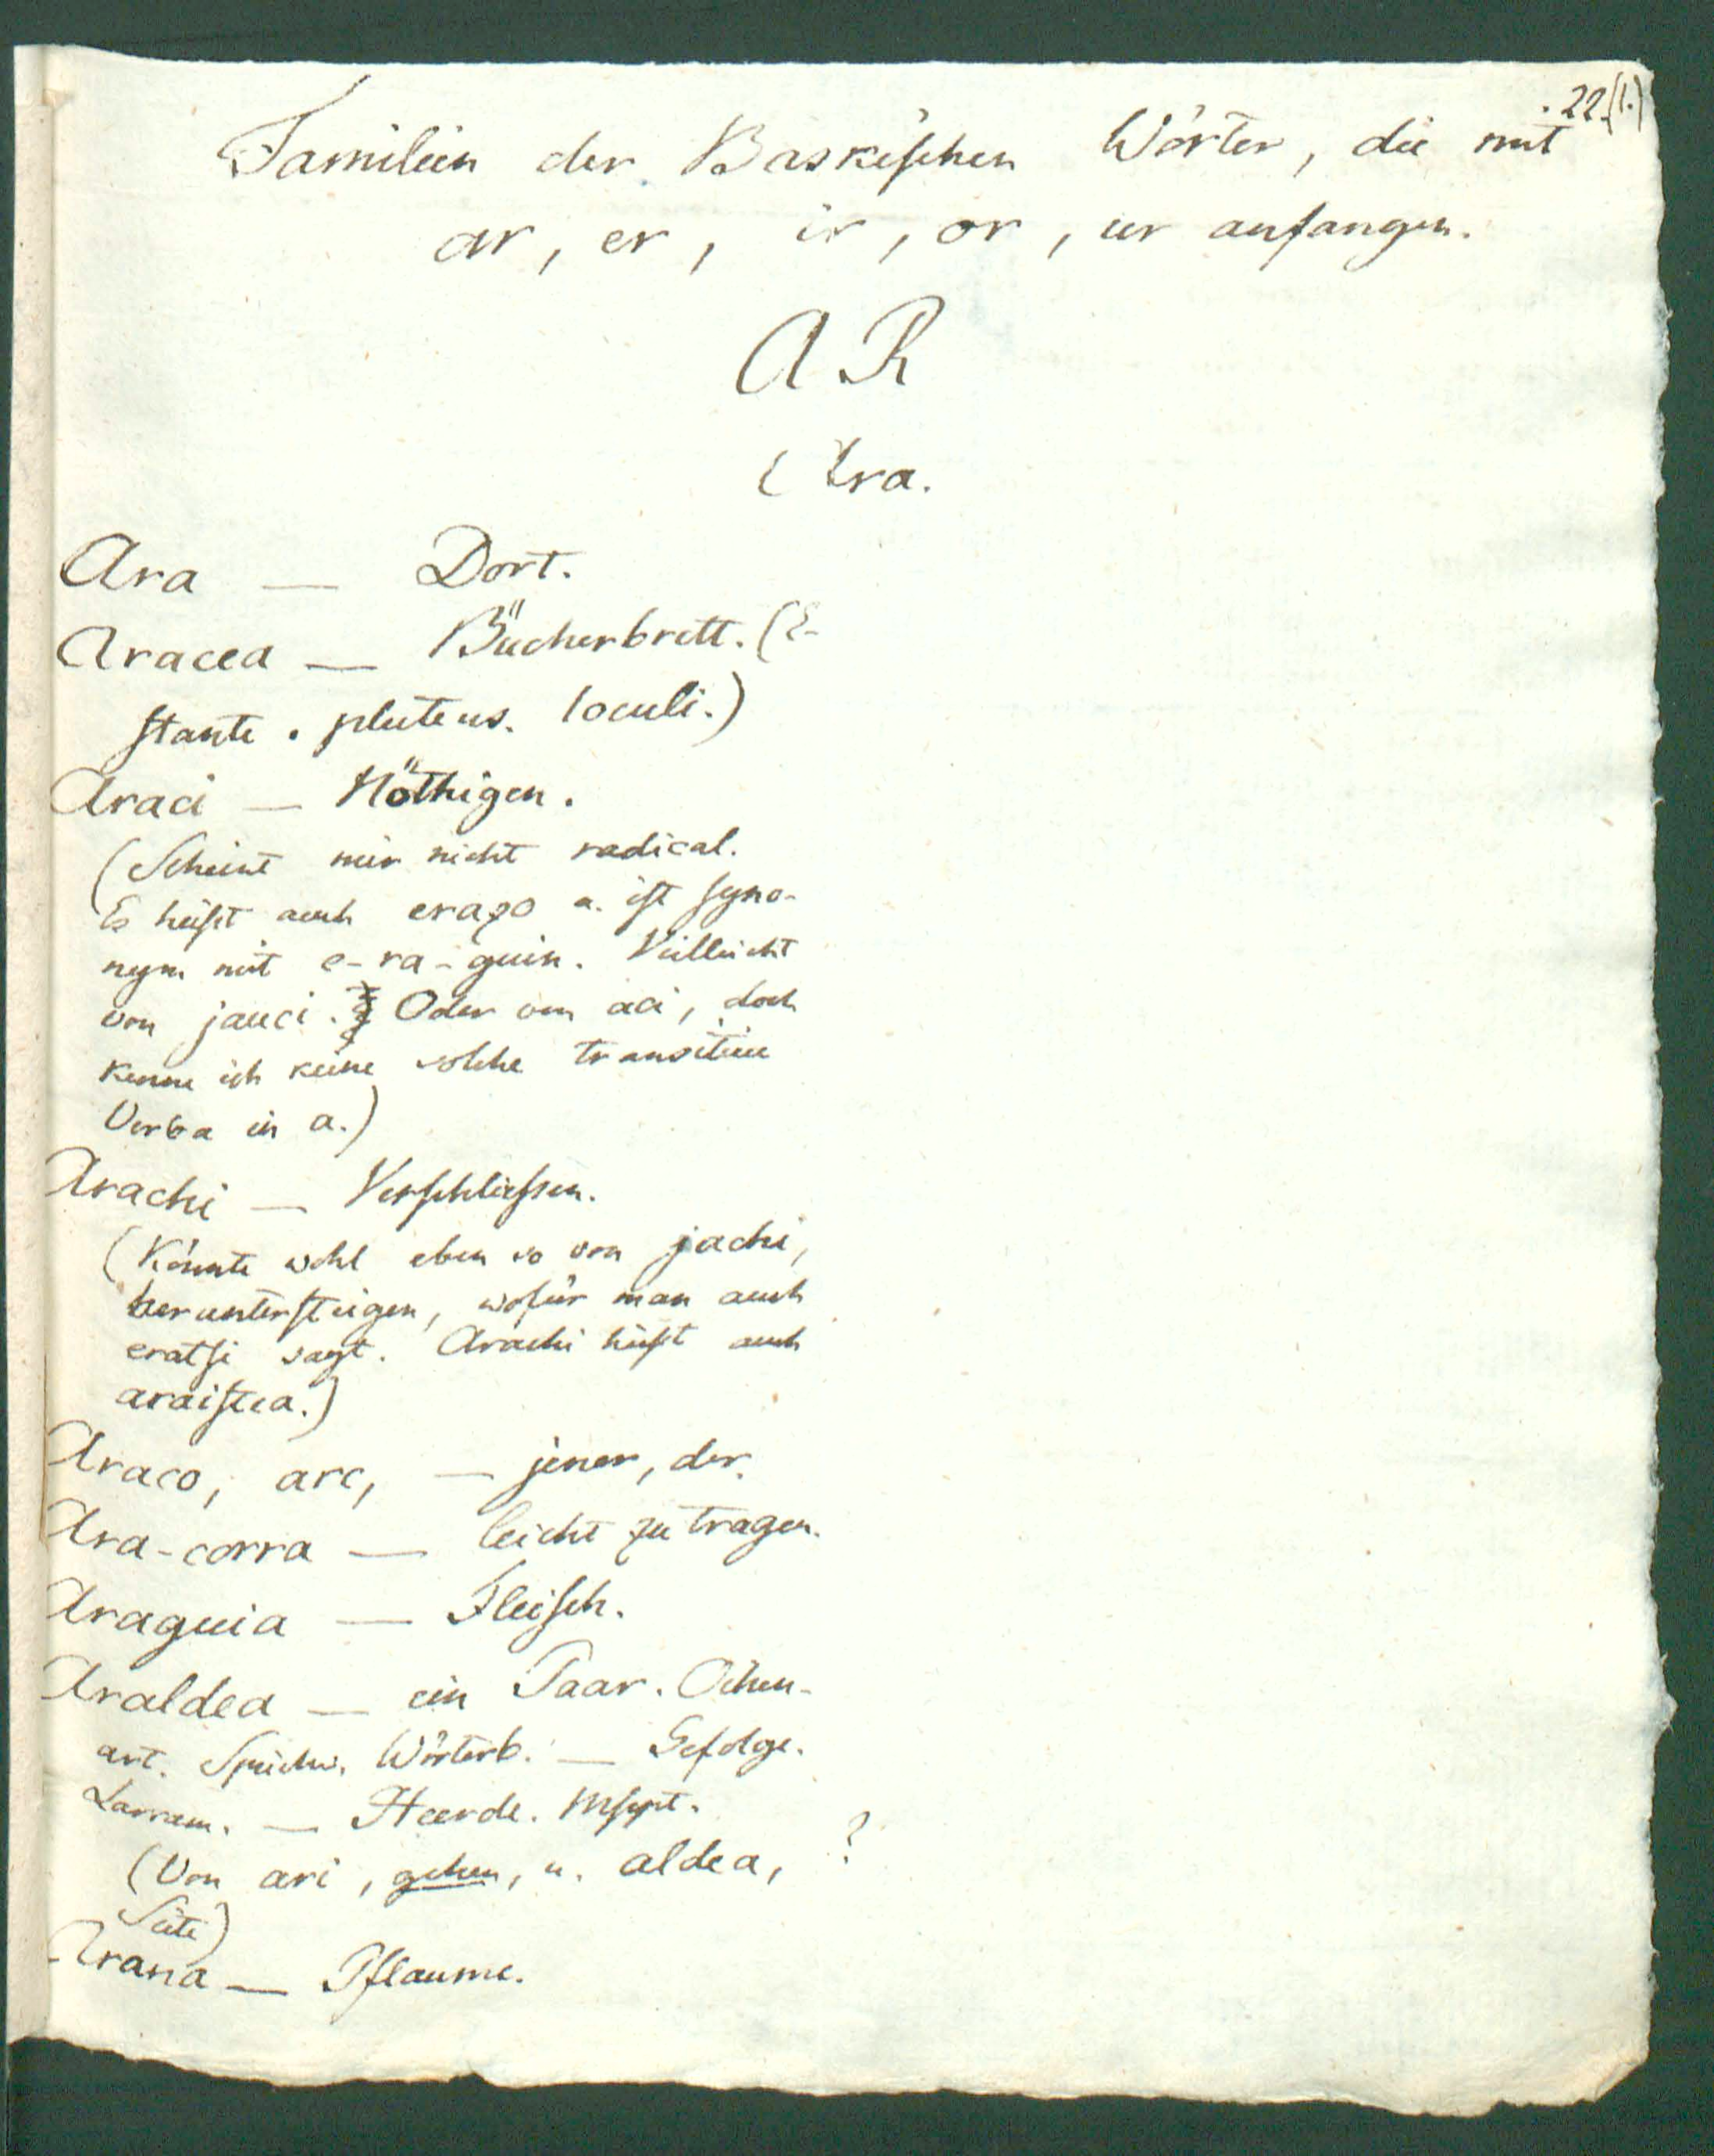 . 22.(1.)
Familien der Baskischen Wörter, die mit
ar, er, ir, or, ur anfangen.
AR
Ara.
Ara — Dort.
Aracea — Bücherbrett. (E-
stante. pluteus. loculi.)
Araci — Nöthigen.
(Scheint mir nicht radical.
Es heißt auch erazo u. ist syno-
nym mit e-ra-guin. Vielleicht
von jauci. Oder von aci, doch
kenne ich keine solche transitive
Verba in a.)
Arachi — Verschliessen.
(Könnte wohl eben so von jachi,
heruntersteigen, wofür man auch
eratsi sagt. Arachi heißt auch
araistea.)
Araco, arc, — jener, der.
Ara-corra — leicht zu tragen.
Araguia — Fleisch.
Araldea — ein Paar. Oihen-
art. Sprichw. Wörterb. — Gefolge.
Larram. — Heerde. Mscpt.
(Von ari, gehen, u. aldea, ?
Seite)
Arana — Pflaume.